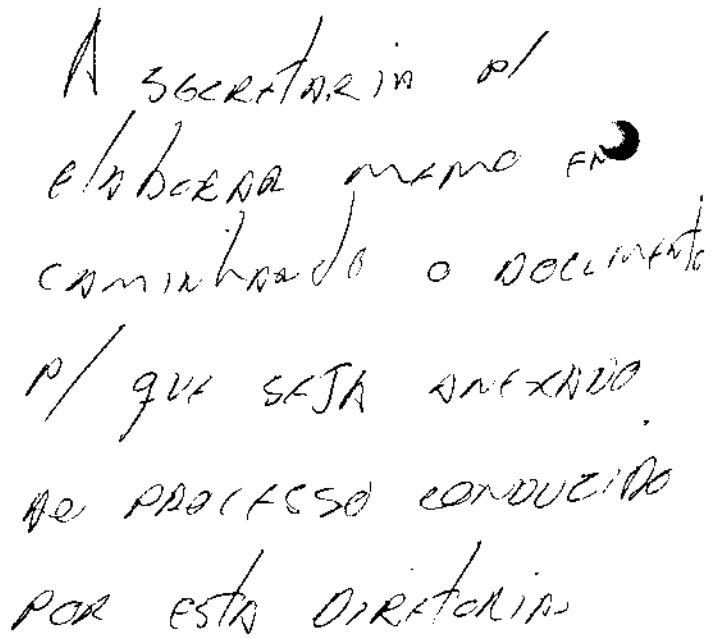 A SECRETARIA P/
elaborar memo EN
CAMINHANDO o DOCUMENTO
P/ que SEJA ANEXADO
AO PROCESSO CONDUZIDO
POR ESTA DIRETORIA.